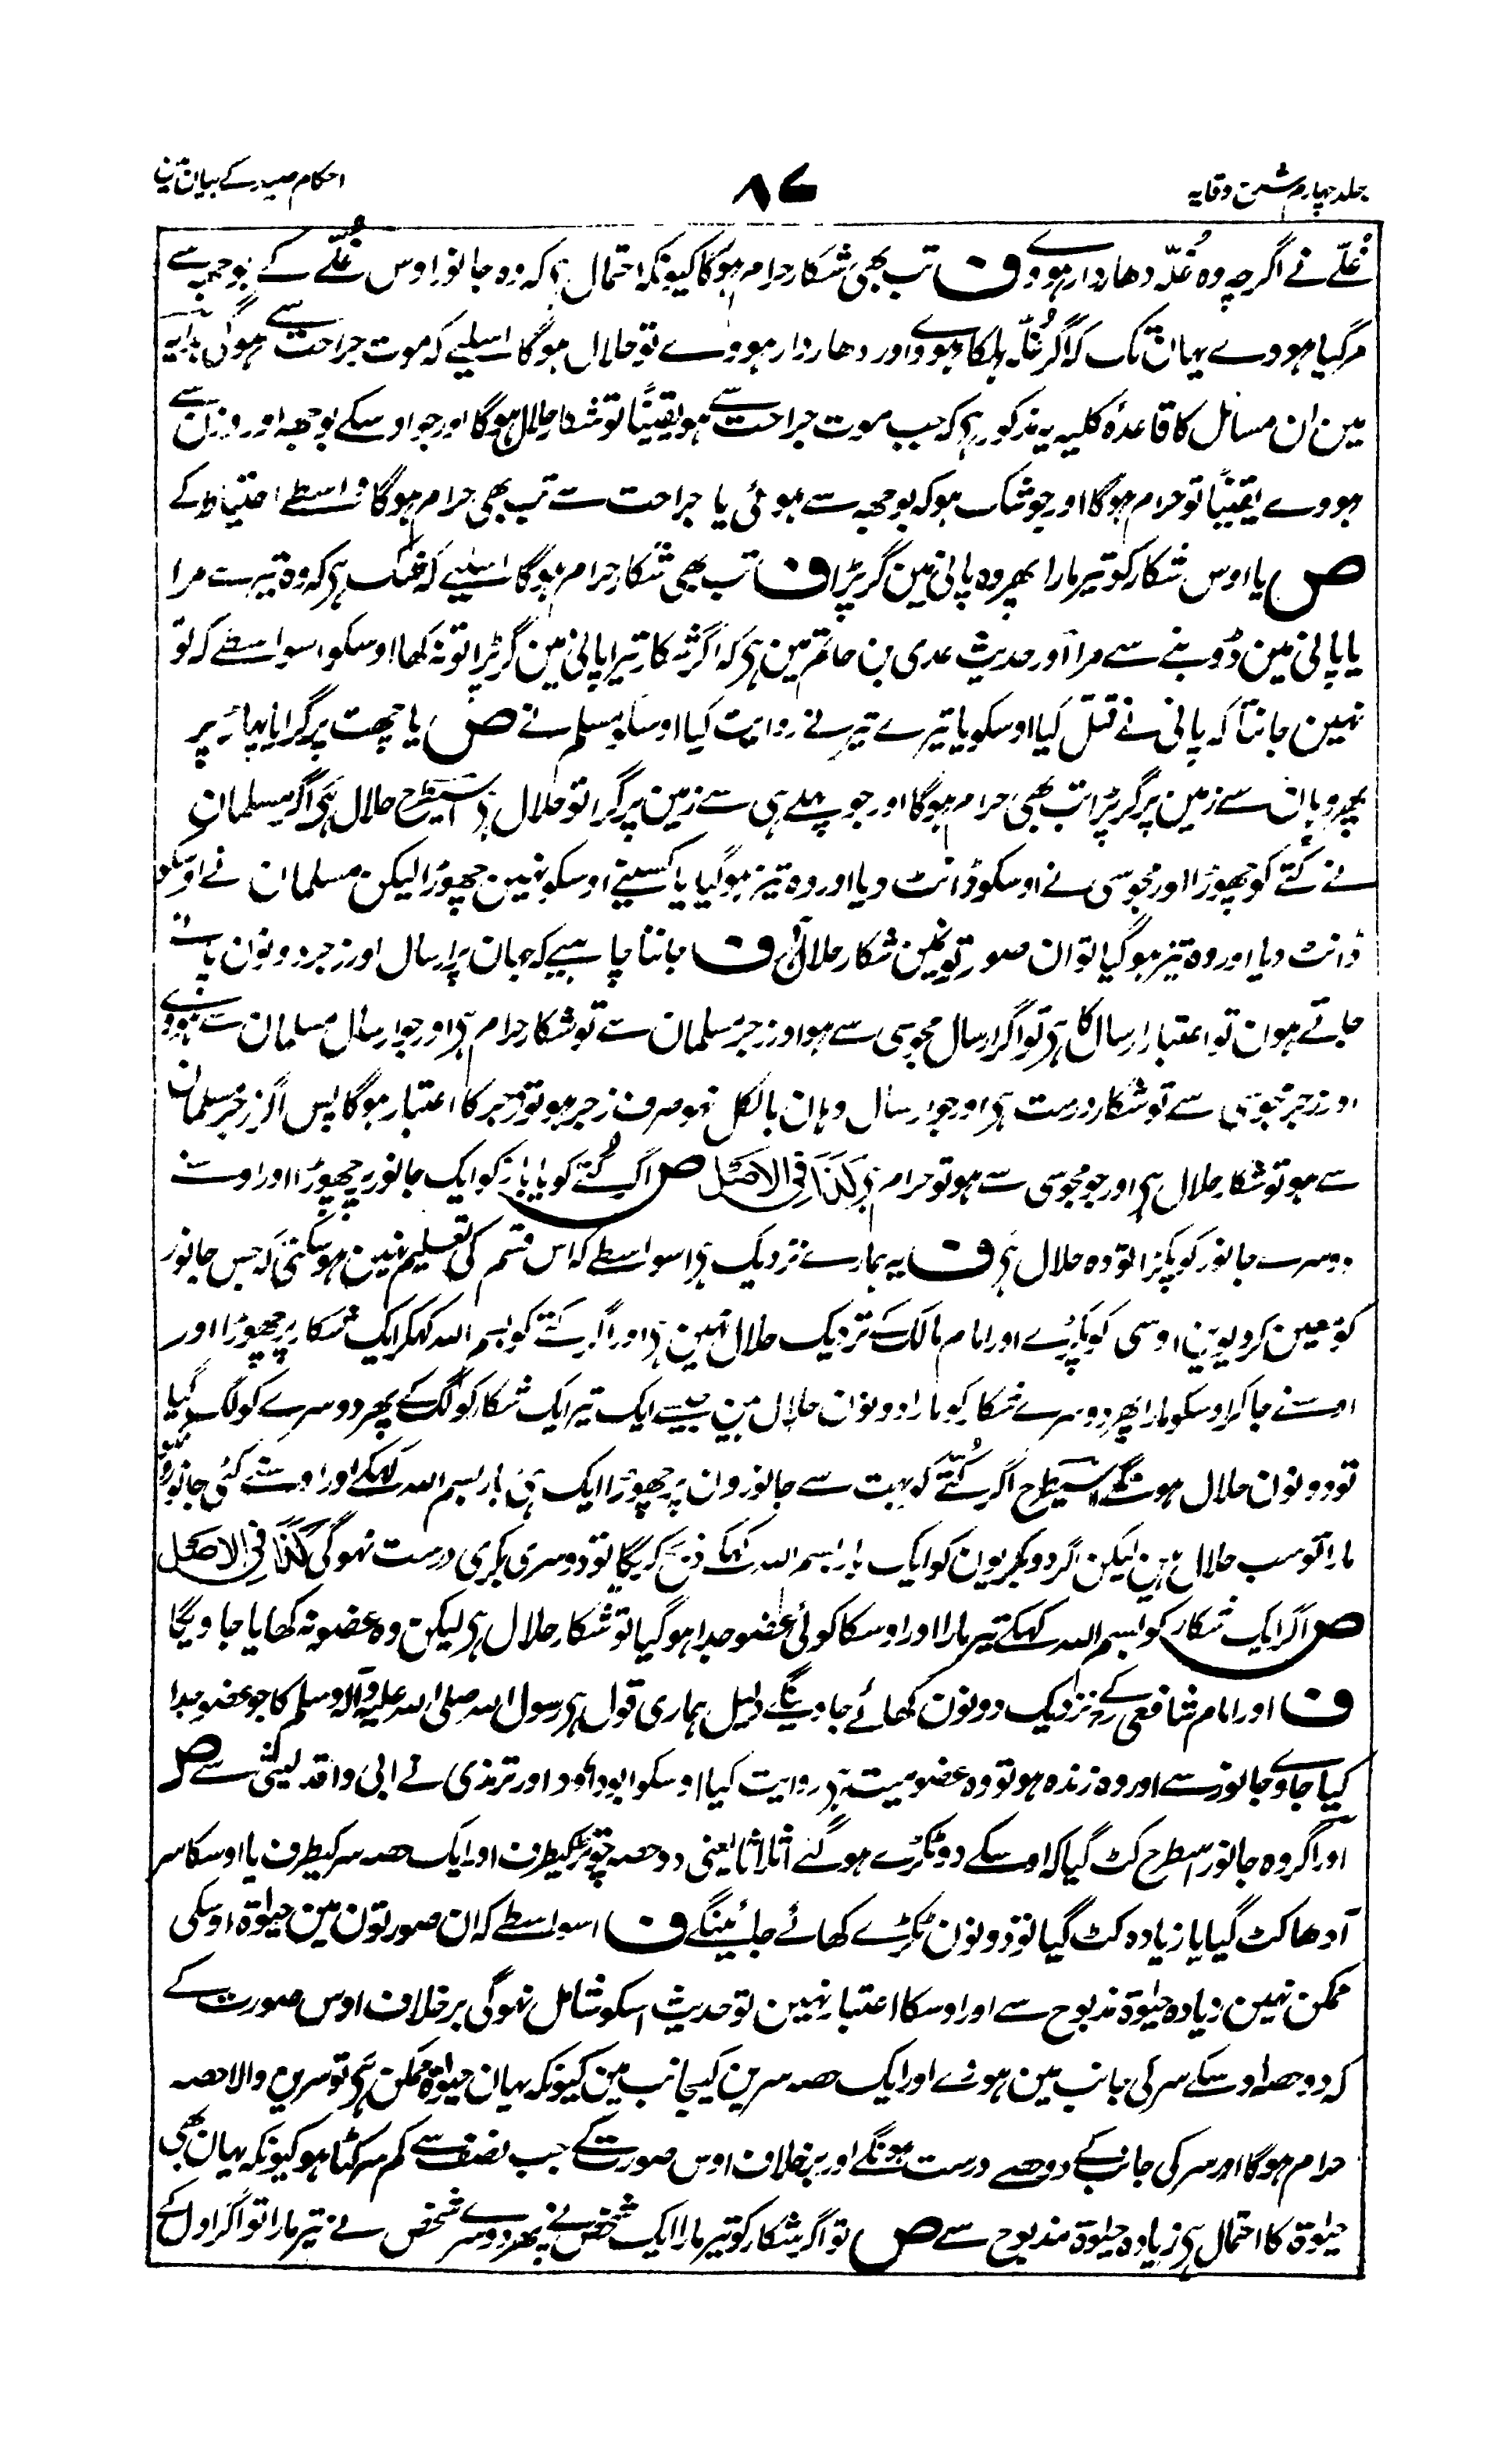 جلد چہارم شرح وقایہ
۸۷
احکام صید کے بیان مین
غُلّے نے اگرچہ وہ غُلّہ دھاردار ہووے ف تب بھی شکار حرام ہوگا کیونکہ احتمال ہی کہ وہ جانور اوس غُلّے کے بوجھ سے
مرگیا ہووے یہان تک کہ اگر غُلّہ ہلکا ہووے اور دھاردار ہووے تو حلال ہوگا اسلیے کہ موت جراحت سے ہوگی ہدایہ
مین ان مسائل کا قاعدۂ کلیہ یہ مذکور ہی کہ جب موت جراحت سے ہو یقینًا تو شکار حلال ہوگا اور جو اوسکے بوجھ اور وزن سے
ہووے یقینًا تو حرام ہوگا اور جو شک ہو کہ بوجھ سے ہوئی یا جراحت سے تب بھی حرام ہوگا واسطے احتیاط کے
ص یا اوس شکار کو تیر مارا پھر وہ پانی مین گر پڑا ف تب بھی شکار حرام ہوگا اسلیے کہ شک ہی کہ وہ تیر سے مرا
یا پانی مین ڈوبنے سے مرا اور حدیث عدی بن حاتم مین ہی کہ اگر شکار تیرا پانی مین گر پڑا تو نہ کھا اوسکو اسواسطے کہ تو
نہین جانتا کہ پانی نے قتل کیا اوسکو یا تیرے تیر نے روایت کیا اوسکو مسلم نے ص یا چھت پر گرا یا پہاڑ پر
پھر وہان سے زمین پر گر پڑا تب بھی حرام ہوگا اور جو پہلے ہی سے زمین پر گرا تو حلال ہی اسیطرح حلال ہی اگر مسلمان
نے کتّے کو چھوڑا اور مجوسی نے اوسکو ڈانٹ دیا اور وہ تیز ہوگیا یا کسینے اوسکو نہین چھوڑا لیکن مسلمان نے اوسکو
ڈانٹ دیا اور وہ تیز ہوگیا تو ان صورتونمین شکار حلال ہی ف جاننا چاہیے کہ جہان پر ارسال اور زجر دونون پائے
جاتے ہون تو اعتبار ارسال کا ہی تو اگر ارسال مجوسی سے ہو اور زجر مسلمان سے تو شکار حرام ہی اور جو ارسال مسلمان سے ہووے
اور زجر مجوسی سے تو شکار درست ہی اور جو ارسال وہان بالکل نہو صرف زجر ہو تو زجر کا اعتبار ہوگا پس اگر زجر مسلمان
سے ہو تو شکار حلال ہی اور جو مجوسی سے ہو تو حرام ہی کَذَا فِی الاَصل ص اگر کُتّے کو یا باز کو ایک جانور پر چھوڑا اور اوسنے
دوسرے جانور کو پکڑا تو وہ حلال ہی ف یہ ہمارے نزدیک ہی اسواسطے کہ اس قسم کی تعلیم نہین ہوسکتی کہ جس جانور
کو معین کر دیوین اوسی کو پکڑے اور امام مالک کے نزدیک حلال نہین ہی اور اگر کتے کو بسم اللہ کہکر ایک شکار پر چھوڑا اور
اوسنے جاکر اوسکو مارا پھر دوسرے شکار کو مارا دونون حلال ہین جیسے ایک تیر ایک شکار کو لگ کے پھر دوسرے کو لگ گیا
تو دونون حلال ہونگے اسیطرح اگر کُتّے کو بہت سے جانورون پر چھوڑا ایک ہی بار بسم اللہ کہکے اور اوسنے کئی جانورونکو
مارا تو سب حلال ہین لیکن اگر دو بکریون کو ایک بار بسم اللہ کہکے ذبح کریگا تو دوسری بکری درست نہوگی کَذَا فِی الاصل
ص اگر ایک شکار کو بسم اللہ کہکے تیر مارا اور اوسکا کوئی عضو جدا ہوگیا تو شکار حلال ہی لیکن وہ عضو نہ کھایا جاویگا
ف اور امام شافعی رح کے نزدیک دونون کھائے جاوینگے دلیل ہماری قول ہی رسول اللہ صلی اللہ علیہ وآلہ وسلم کا جو عضو جدا
کیا جاوے جانور سے اور وہ زندہ ہو تو وہ عضو میت ہی روایت کیا اوسکو ابوداود اور ترمذی نے ابی واقد لیثی سے ص
اور اگر وہ جانور اسطرح کٹ گیا کہ اوسکے دو ٹکڑے ہوگئے اثلاثا یعنی دو حصہ چوتڑ کیطرف اور ایک حصہ سر کیطرف یا اوسکا سر
آدھا کٹ گیا یا زیادہ کٹ گیا تو دونون ٹکڑے کھائے جائینگے ف اسواسطے کہ ان صورتون مین حیوٰۃ اوسکی
ممکن نہین زیادہ حیٰوۃ مذبوح سے اور اوسکا اعتبار نہین تو حدیث اسکو شامل نہوگی برخلاف اوس صورت کے
کہ دو حصہ اوسکے سر کی جانب مین ہوے اور ایک حصہ سرین کیجانب مین کیونکہ یہان حیٰوۃ ممکن ہی تو سرین والا حصہ
حرام ہوگا اور سر کی جانب کے دو حصے درست ہونگے اور برخلاف اوس صورت کے جب نصف سے کم سر کٹا ہو کیونکہ یہان بھی
حیٰوۃ کا احتمال ہی زیادہ حیٰوۃ مذبوح سے ص تو اگر شکار کو تیر مارا ایک شخص نے پھر دوسرے شخص نے تیر مارا تو اگر اول کے